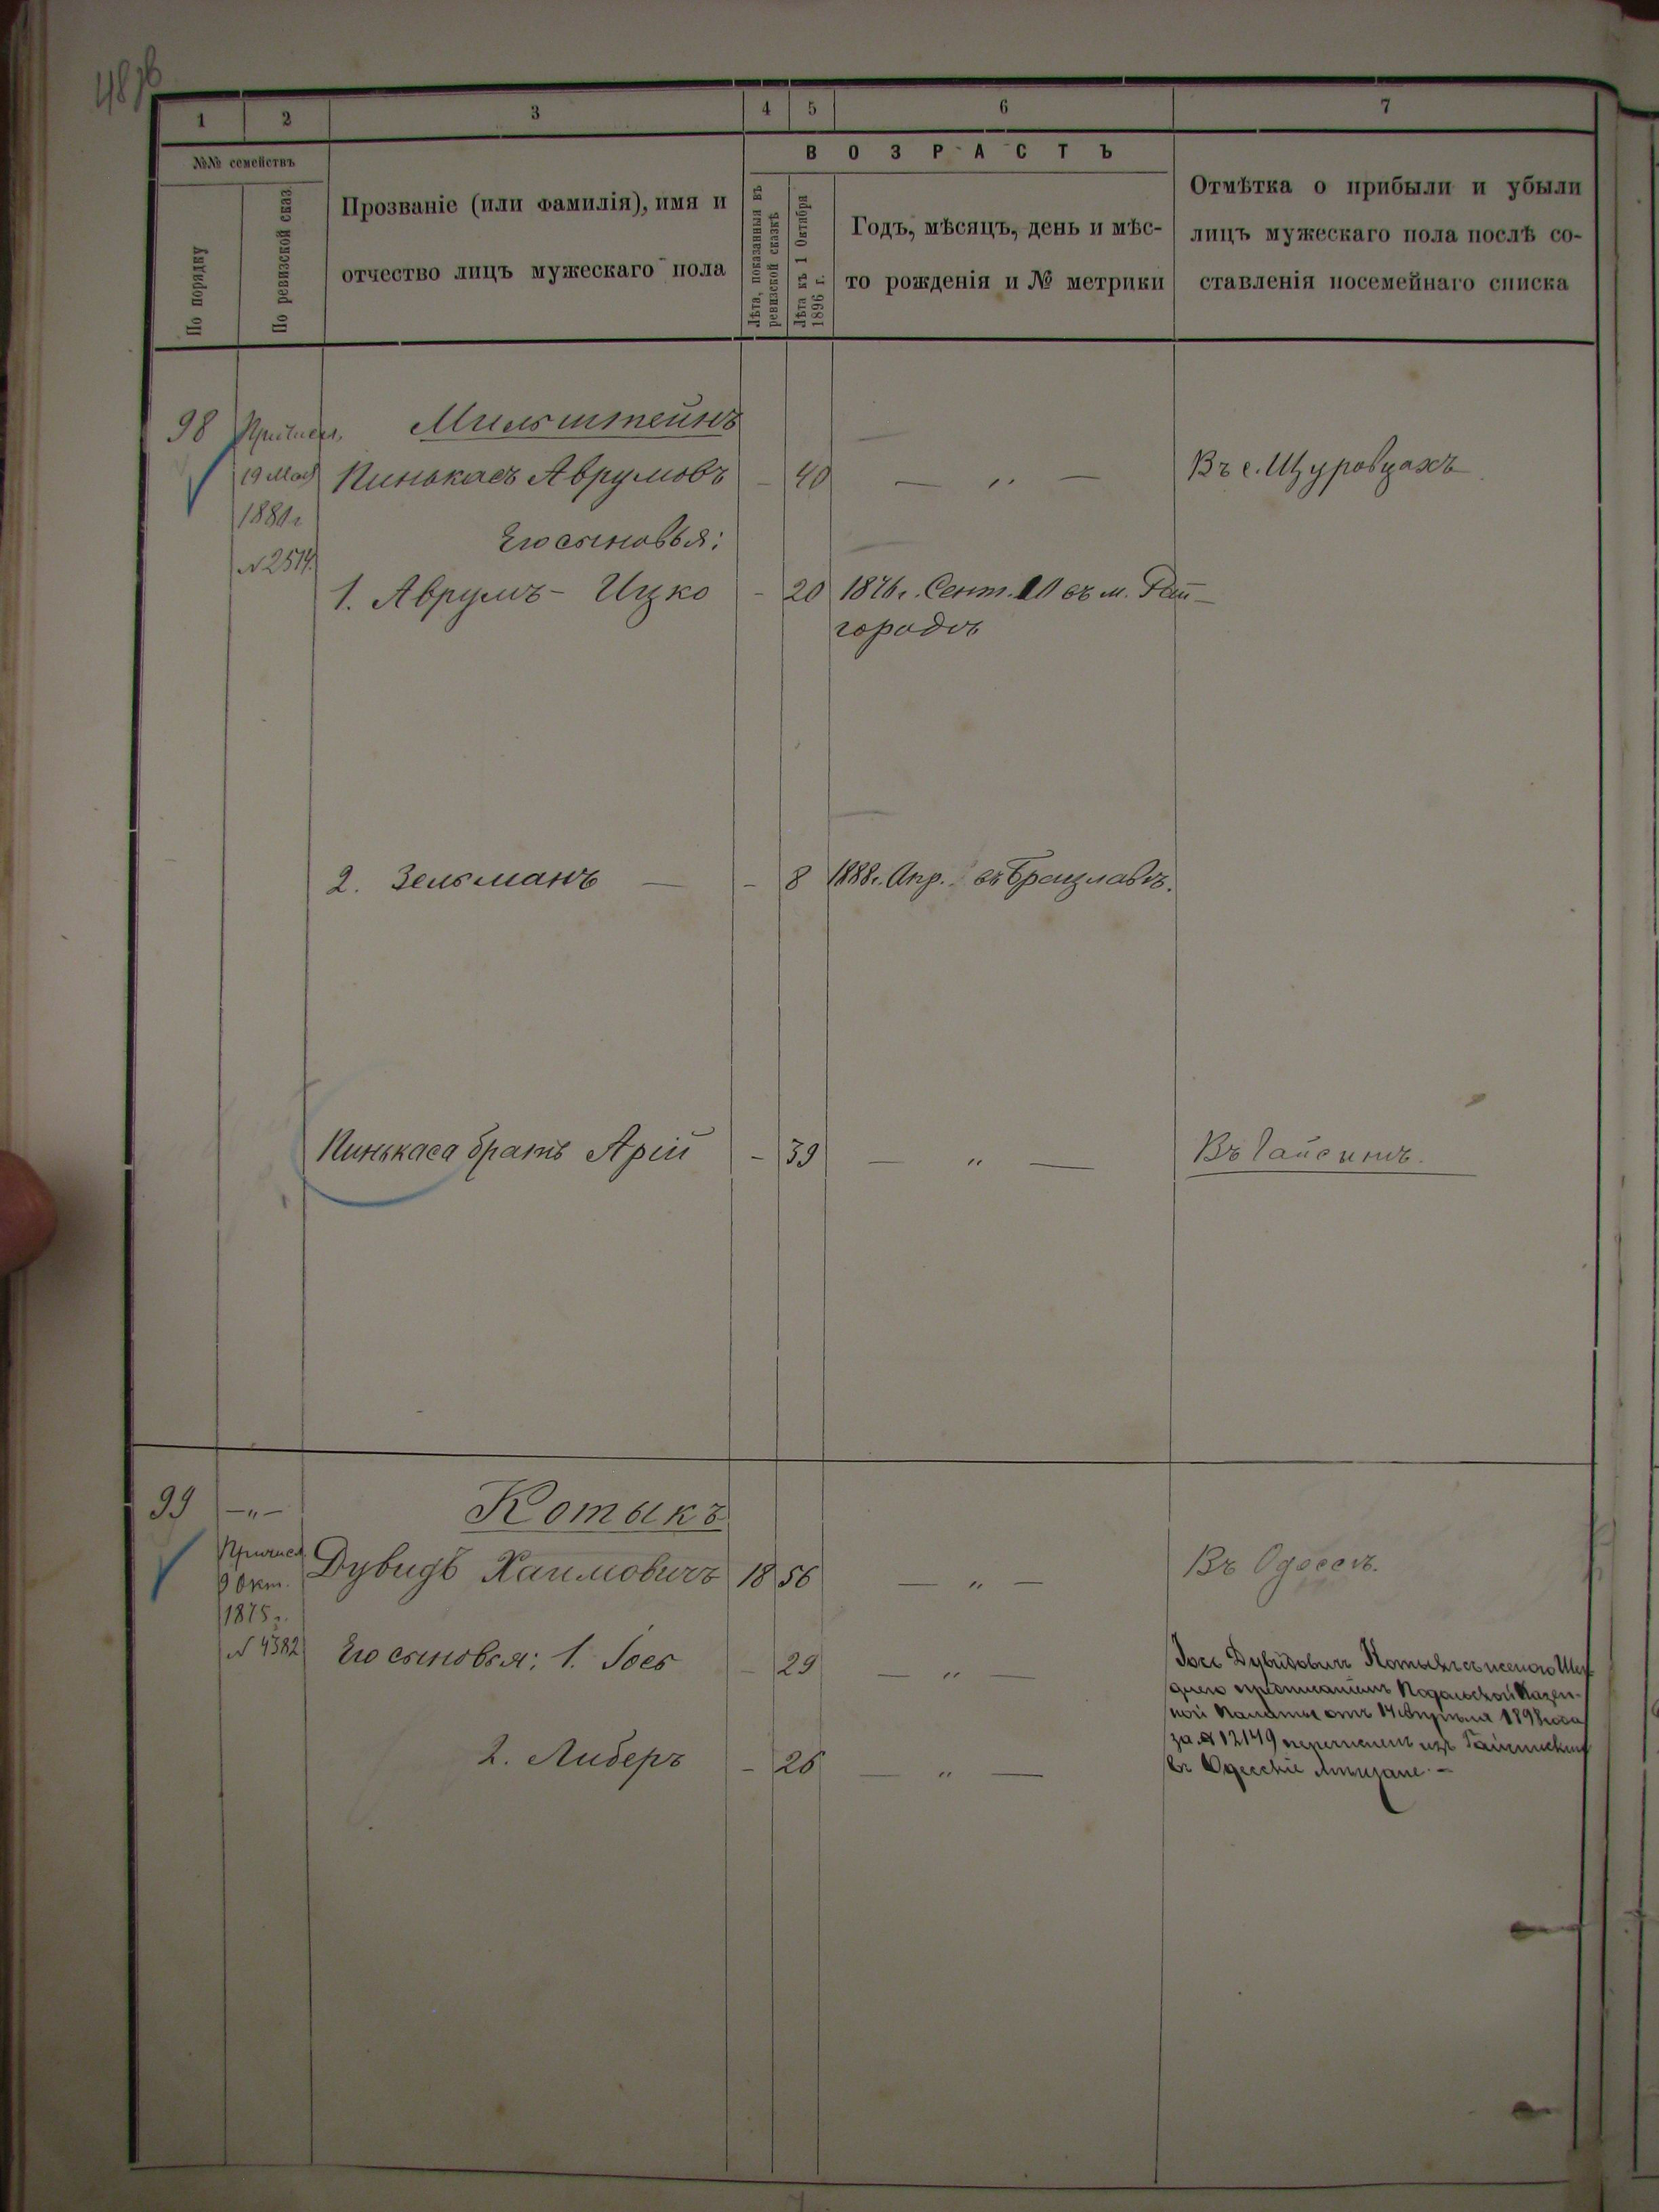 1 2 3 4 5 6 7
№№ семействъ
По порядку
По ревизской сказ.
Прозваніе (или фамилія), имя и
отчество лицъ мужескаго пола
ВОЗРАСТЪ
Лѣта, показанныя въ
ревизской сказкѣ
Лѣта къ 1 Октября
1896 г.
Годъ, мѣсяцъ, день и мѣс-
то рожденія и № метрики
Отмѣтка о прибыли и убыли
лицъ мужескаго пола послѣ со-
ставленія посемейнаго списка
98 Причисл. Мильштейнъ
19 Мая Пинькасъ Аврумовъ - 40 — " — Въ с. Щуровцахъ
188 г
Его сыновья:
№ 2514.
1. Аврумъ - Ицко - 20 1876 г. Сент. 10 въ м. Рай-
городѣ
2. Зельманъ — - 8 1888 г. Апр. въ Брацлавѣ.
Пинькаса братъ Арій - 39 — " — Въ Гайсинѣ.
99 — " — Котыкъ
Причисл. Дувидъ Хаимовичъ 18 56 — " — Въ Одессѣ.
9 Окт.
1875 г.
№ 4382 Его сыновья: 1. Іось - 29 — " —
Іось Дувидовичъ Котыкъ съ женою
предписаніемъ Подольской Казен-
ной Палаты отъ 14 Апрѣля 1898 года
за № 12149 перечисленъ изъ Гайсинскихъ
въ Одесскіе Мѣщане. -
2. Либеръ - 26 — " —